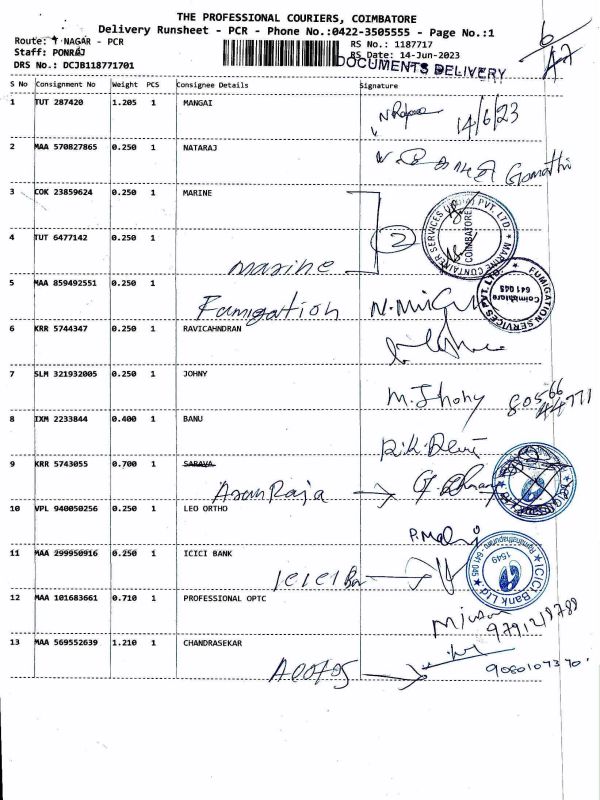 THE PROFESSIONAL COURIERS, COIMBATORE
Delivery Runsheet - PCR - Phone No.:0422-3505555 - Page No.:1
Route: T NAGAR - PCR
RS No.: 1187717
Staff: PONRAJ
RS Date: 14-Jun-2023
DRS No.: DCJB118771701
DOCUMENTS DELIVERY
S No Consignment No Weight PCS Consignee Details Signature
1 TUT 287420 1.205 1 MANGAI
14/6/23
2 MAA 570827865 0.250 1 NATARAJ
Gomathi
3 COK 23859624 0.250 1 MARINE
4 TUT 6477142 0.250 1
marine
2
MARINE CONTAINER SERVICES PVT. LTD.
COIMBATORE
5 MAA 859492551 0.250 1
Fumigation
FUMIGATION SERVICES PVT. LTD.
Coimbatore
641 045
6 KRR 5744347 0.250 1 RAVICAHNDRAN
7 SLM 321932005 0.250 1 JOHNY
M. Jhony
8 IXM 2233844 0.400 1 BANU
R.K. Devi
9 KRR 5743055 0.700 1 SARAVA
Arun Raja
10 VPL 940050256 0.250 1 LEO ORTHO
11 MAA 299950916 0.250 1 ICICI BANK
ICICI Bank Ltd
Ramanathapuram - 641 045
1549
12 MAA 101683661 0.710 1 PROFESSIONAL OPTC
13 MAA 569552639 1.210 1 CHANDRASEKAR